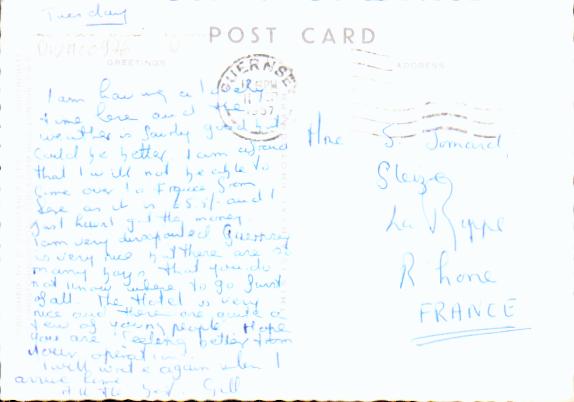 Tuesday
POST CARD
GREETINGS
ADDRESS
GUERNSEY
1957
I am having a lovely
time here and the
weather is fairly good but
could be better. I am afraid
that I will not be able to
come over to France from
here as it is £5.5/- and I
just havn't got the money
I am very disapointed Guernsey
is very nice but there are so
many bays that you do
not know where to go first
of all. The Hotel is very
nice and there are quite a
few of young people. Hope
you are feeling better from
your operation.
I will write again when I
arrive home
All the best Gill
Mme S. Jomard,
La
Rhone
FRANCE